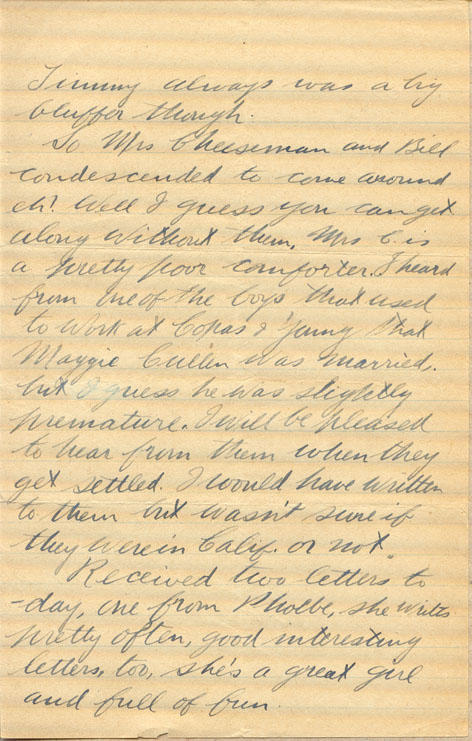 Jimmy always was a big
bluffer though.
So Mrs Cheeseman and Bill
condescended to come around
eh! Well I guess you can get
along without them, Mrs C. is
a pretty poor comforter. I heard
from one of the boys that used
to work at Copas & Young that
Maggie Cullen was married.
but I guess he was slightly
premature. I will be pleased
to hear from them when they
get settled. I would have written
to them but wasn't sure if
they were in Calif. or not.
Received two letters to
-day, one from Phoebe, she writes
pretty often, good interesting
letters, too, she's a great girl
and full of fun.